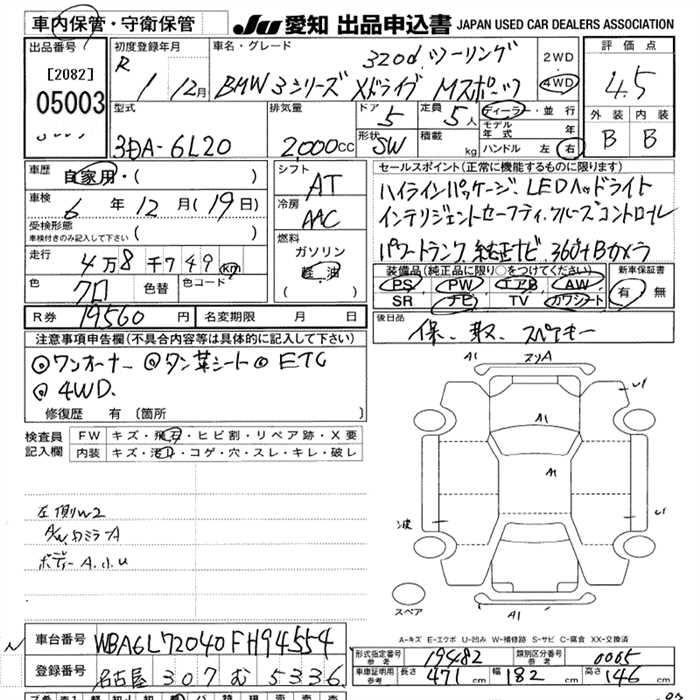 車内保管・守衛保管
JU 愛知 出品申込書 JAPAN USED CAR DEALERS ASSOCIATION
出品番号
[2082]
05003
初度登録年月
R 1 12月
車名・グレード
320d ツーリング
BMW 3シリーズ Xドライブ Mスポーツ
2WD
4WD
評価点
4.5
外装 内装
B B
型式
3DA-6L20
排気量
2000cc
ドア
5
定員
5人
形状
SW
積載
kg
ディーラー・並行
モデル年式 年
ハンドル 左 右
車歴
自家用・( )
車検
6年 12月(19日)
受検形態
車検付きのみ記入して下さい ( )
走行
4万8千749km
色
クロ
色替
色コード
R券 19560円
名変期限 月 日
シフト
AT
冷房
AAC
燃料
ガソリン
軽油
( )
セールスポイント(正常に機能するものに限ります)
ハイラインパッケージ LEDヘッドライト
インテリジェントセーフティ.クルーズコントロール
パワートランク.純正ナビ.360°+Bカメラ
装備品(純正品に限り○をつけてください)
PS PW エアB AW
SR ナビ TV カワシート
新車保証書
有 無
後日品
保、取、スペキー
注意事項申告欄(不具合内容等は具体的に記入して下さい)
◎ワンオーナー ◎タン革シート ◎ETC
◎4WD.
修復歴 有 〔箇所 〕
検査員記入欄
FW キズ・飛石・ヒビ割・リペア跡・X要
内装 キズ・汚れ・コゲ・穴・スレ・キレ・破レ
左側W2
ボディーA.小U
A1
A1
A1
U1
U1
A1
スペア
A-キズ E-エクボ U-凹み W-補修跡 S-サビ C-腐食 XX-交換済
車台番号 WBA6L72040FH94554
登録番号 名古屋 307 む 5336
形式指定番号 参考 19482
類別区分番号 参考 0065
車庫証明用 参考 長さ 471cm 幅 182cm 高さ 146cm